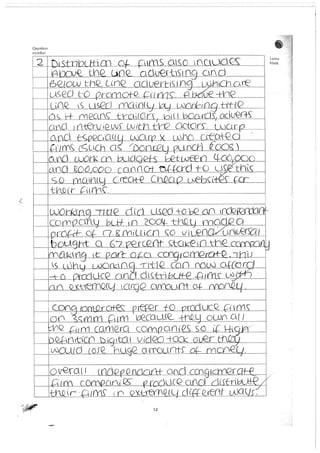 Question
number
Leave
blank
2 Distribution of films also includes
Above the Line advertising and
Below the Line advertising which are
used to promote films. Above the
Line is used mainly by working title
as it means trailors, billboards, adverts
and interviews with the actors. Warp
and especially warp x who created
films (such as 'Donkey punch 2008)
and work on budgets between 400,000
and 800,000 cannot afford to use this
so mainly create cheap websites for
their films.
Working Title did used to be an independant
company but in 2004 they maded a
profit of 17.8 million so vivend/universal
bought a 67 percent stake in the company
making it part of a conglomerate. This
is why working Title can now afford
to produce and distribute films with
an extremely large amount of money.
Conglomerates prefer to produce films
on 35mm film because they own all
the film camera companies so if High
Definition Digital Video took over they
would lose huge amounts of money.
Overall independant and conglomerate
film companies produce and distribute
their films in extremely different ways.
12